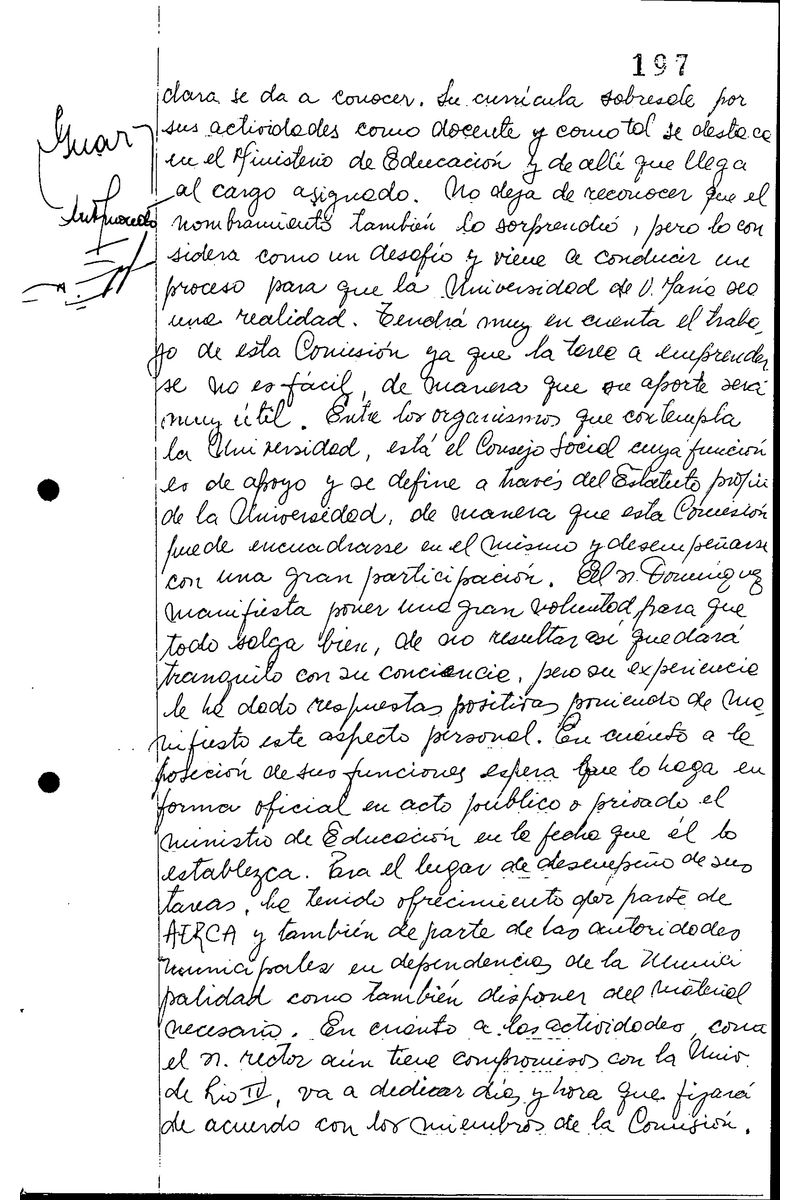 197
dara se da a conocer. Su currícula sobresale por
sus actividades como docente y como tal se destaca
en el Ministerio de Educación y de allí que llega
al cargo asignado. No deja de reconocer que el
nombramiento también lo sorprendió, pero lo con
sidera como un desafío y viene a conducir un
proceso para que la Universidad de V. María sea
una realidad. Tendrá muy en cuenta el traba-
jo de esta Comisión ya que la tarea a emprender
se no es fácil, de manera que su aporte será
muy útil. Entre los organismos que contempla
la Universidad, está el Consejo Social cuya función
es de apoyo y se define a través del Estatuto propio
de la Universidad, de manera que esta Comisión
puede encuadrarse en el mismo y desempeñarse
con una gran participación. El Sr. Domínguez
manifiesta poner una gran voluntad para que
todo salga bien, de no resultar así quedará
tranquilo con su conciencia, pero su experiencia
le ha dado respuestas positivas poniendo de ma-
nifiesto este aspecto personal. En cuánto a la
posición de sus funciones espera que lo haga en
forma oficial en acto público o privado el
ministro de Educación en la fecha que él lo
establezca. Para el lugar de desempeño de sus
tareas, ha tenido ofrecimiento por parte de
AERCA y también de parte de las autoridades
municipales en dependencias de la Munici
palidad como también disponer del material
necesario. En cuánto a las actividades, como
el Sr. rector aún tiene compromisos con la Univ.
de Río IV, va a dedicar días y hora que fijará
de acuerdo con los miembros de la Comisión.